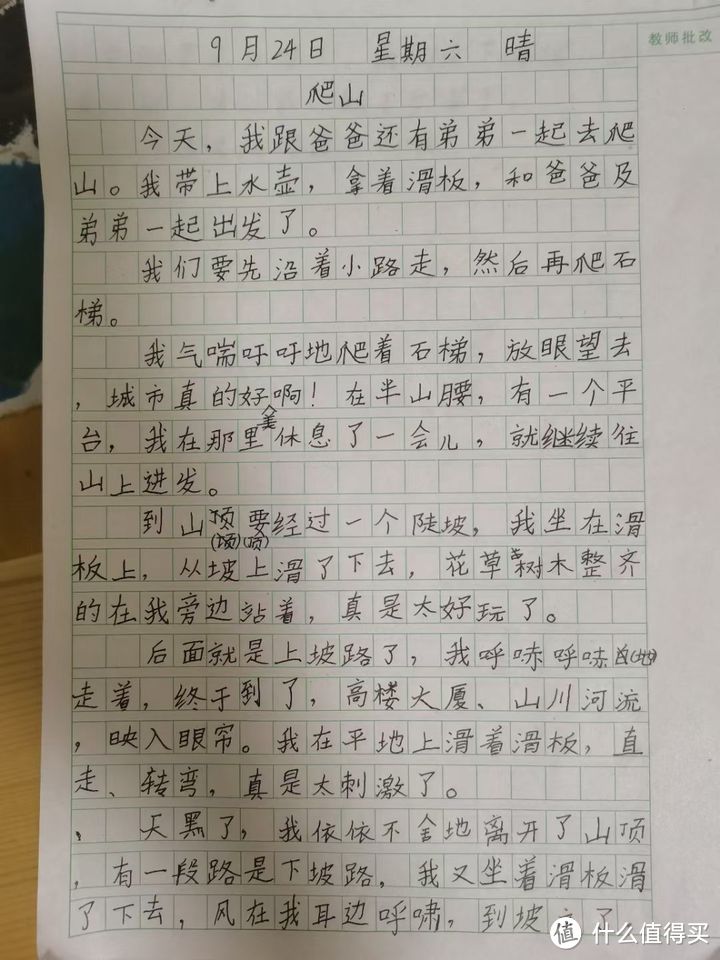 教师批改
9月24日 星期六 晴
爬山
今天，我跟爸爸还有弟弟一起去爬
山。我带上水壶，拿着滑板，和爸爸及
弟弟一起出发了。
我们要先沿着小路走，然后再爬石
梯。
我气喘吁吁地爬着石梯，放眼望去
，城市真的好美啊！在半山腰，有一个平
台，我在那里休息了一会儿，就继续往
山上进发。
到山顶要经过一个陡坡，我坐在滑
(顶)(顶)
板上，从坡上滑了下去，花草树木整齐
的在我旁边站着，真是太好玩了。
后面就是上坡路了，我呼哧呼哧(地)
走着，终于到了，高楼大厦、山川河流
，映入眼帘。我在平地上滑着滑板，直
走、转弯，真是太刺激了。
、天黑了，我依依不舍地离开了山顶
，有一段路是下坡路，我又坐着滑板滑
了下去，风在我耳边呼啸，到坡了
值 什么值得买